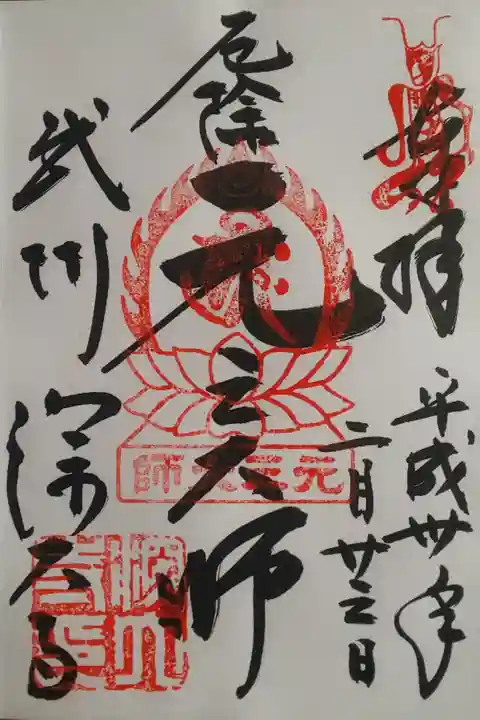 奉拝
平成卅年
二月廿三日
厄除元三大師
元三大師
武州
深大寺